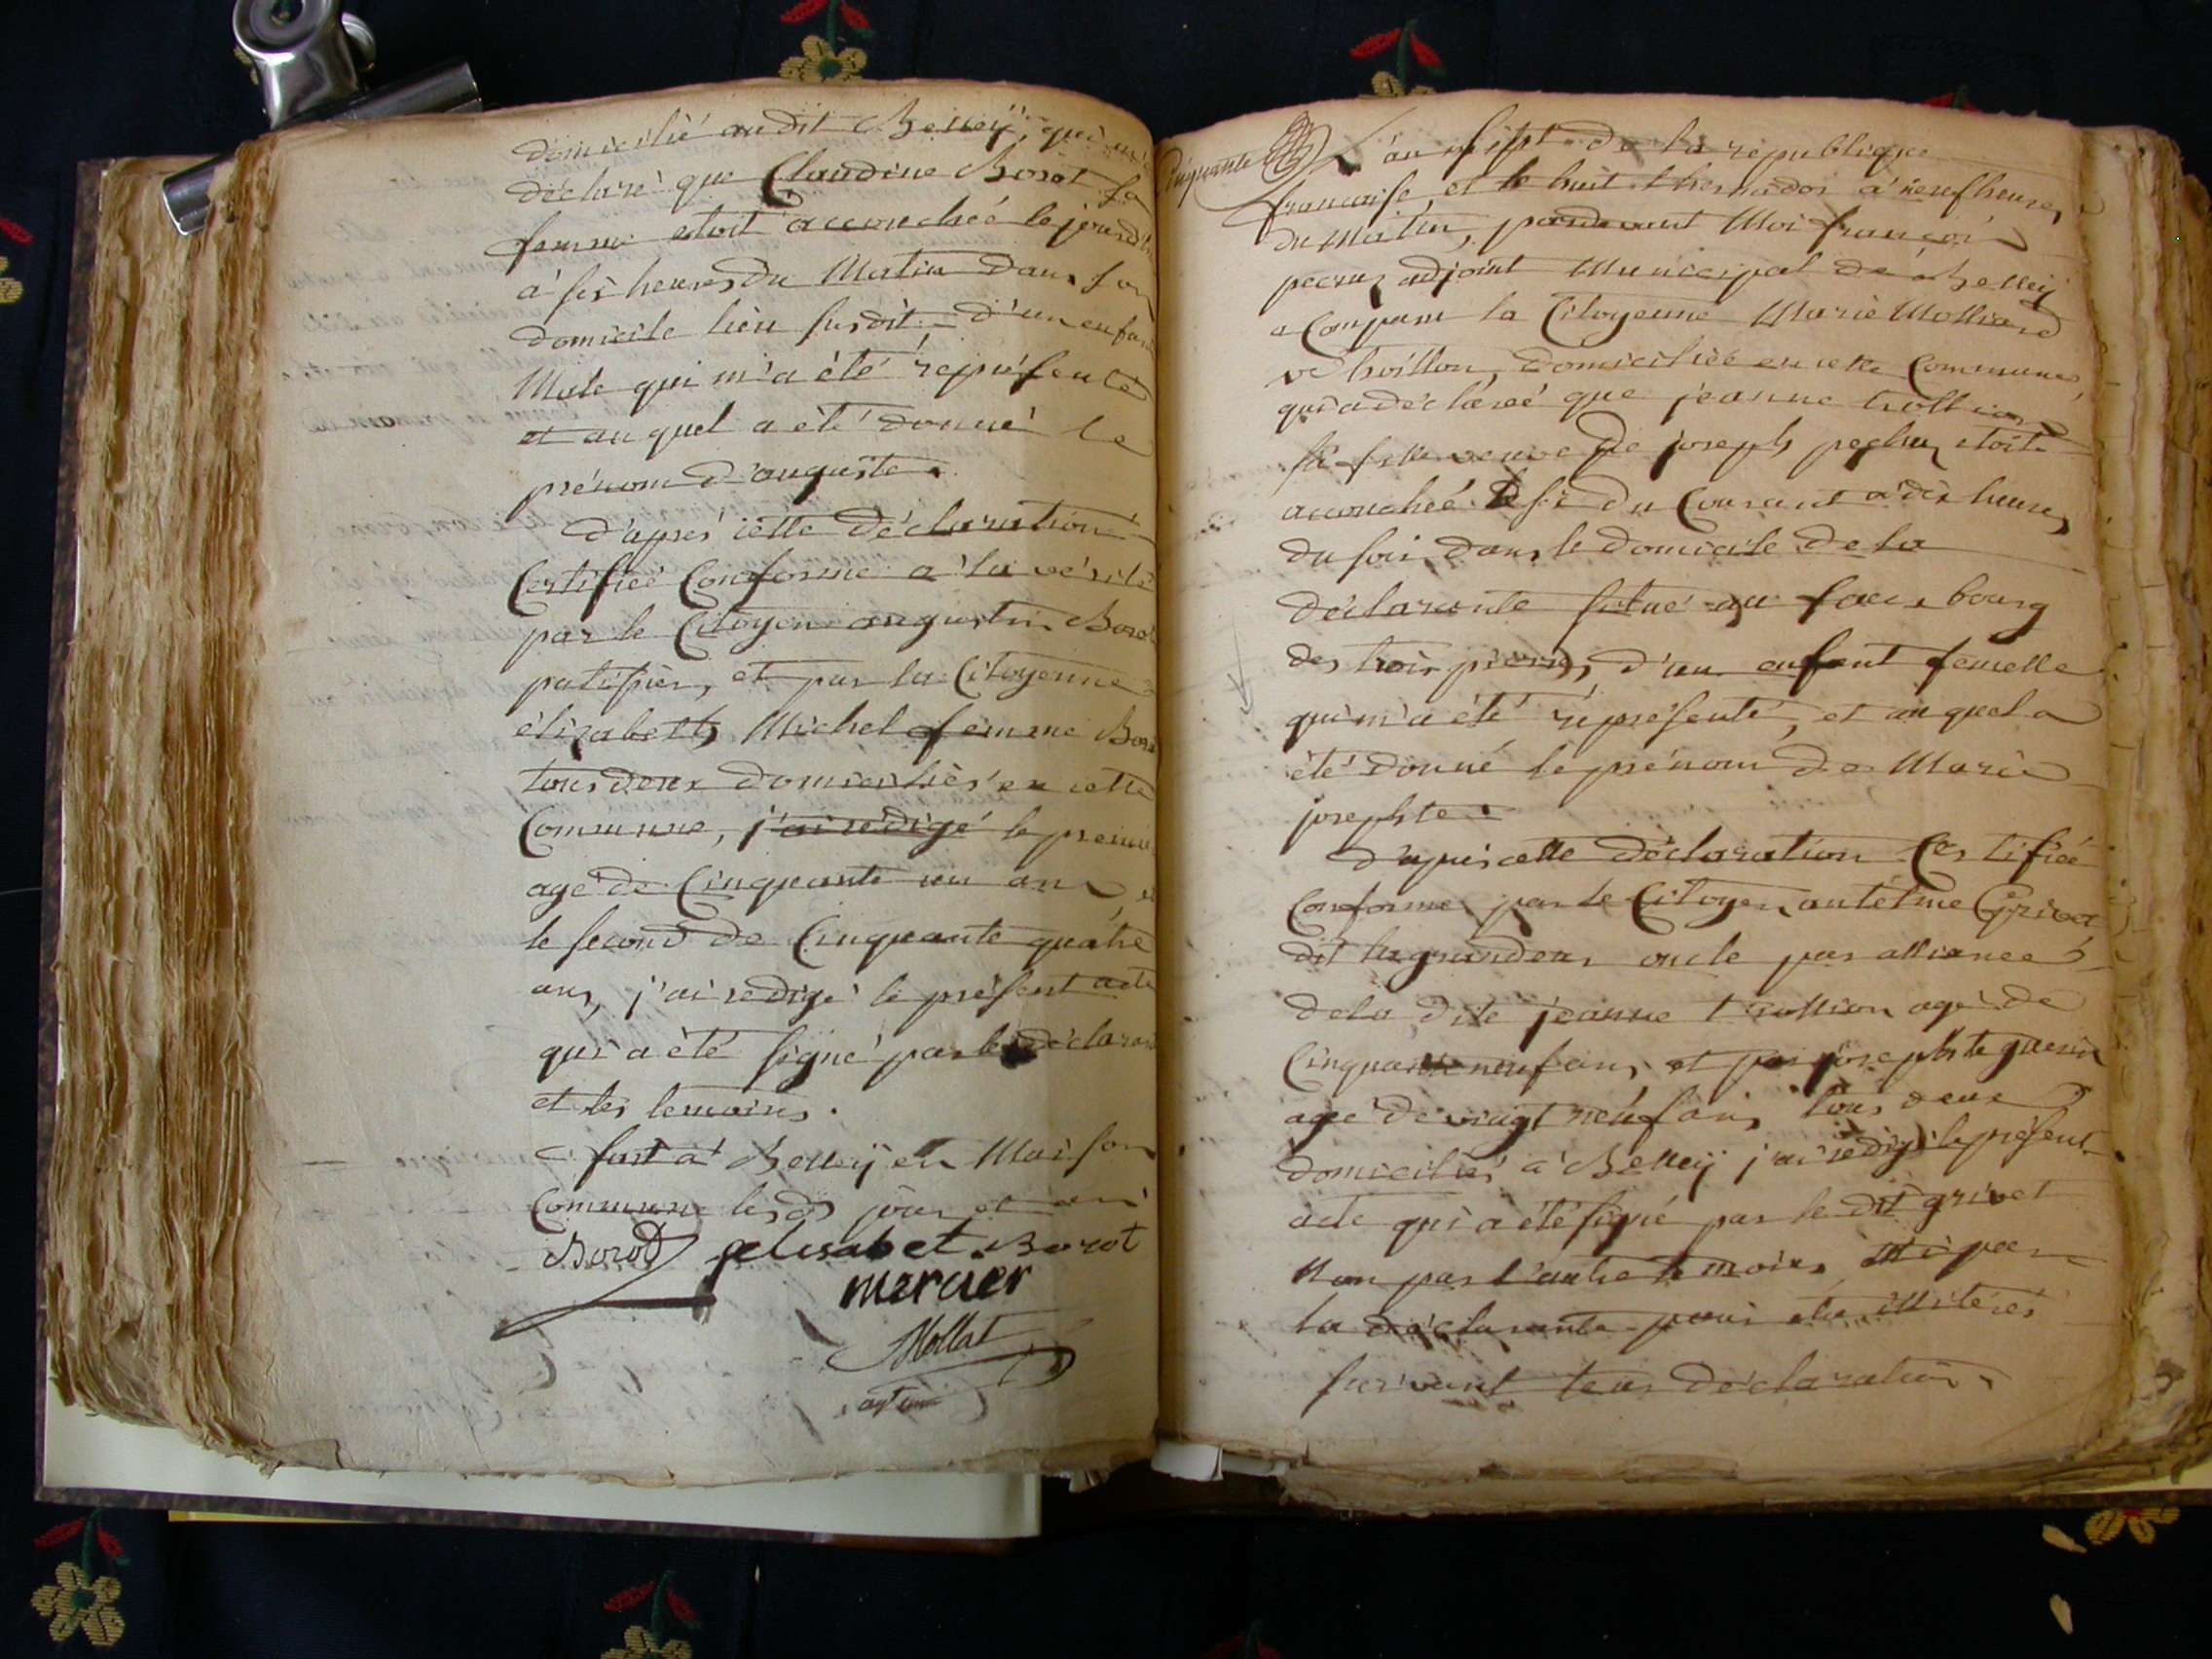 domicilié audit Belley, qui m'a
déclaré que Claudine Borot sa
femme etoit accouchée le jourd'hui
à six heures du Matin dans son
domicile lieu susdit, d'un enfant
Male qui m'a été représenté
et auquel a été donné le
prénom d'auguste.
d'après cette déclaration
Certifiée Conforme a la vérité
par le Citoyen augustin Borot
patissier, et par la Citoyenne
élizabeth Michel femme Borot
tous deux domiciliés en cette
Commune, j'ai redigé le premier
agé de Cinquante un an, et
le second de Cinquante quatre
ans, j'ai redigé le présent acte
qui a été signé par le déclarant
et les temoins.
fait à Belley en Maison
Commune lesds jour et an
Borot elisabet Borot
mercier
Mollat
Cinquante L'an sept de la république
francaise, et le huit thermidor à neuf heures
du Matin, pardevant Moi françois
adjoint Municipal de Belley
a Comparu la Citoyenne Marie Molliard
ve trollion, domiciliée en cette Commune
qui a déclaré que jeanne trollion
sa fille veuve de joseph etoit
accouchée le six du Courant a dix heures
du soir dans le domicile de la
déclarante situé au fauxbourg
des trois pierres, d'un enfant femelle
qui m'a été réprésenté, et auquel a
été donné le prénom de Marie
josephte.
d'après cette déclaration Certifiée
Conforme par le Citoyen antelme Grivet
dit lagrandeur oncle par alliance
de la dite jeanne trollion agé de
Cinquante neuf ans, et par josephte guerin
agé de vingt neuf ans, tous deux
domiciliés à Belley j'ai redigé le présent
acte qui a été signé par le dit grivet
Non par l'autre temoin ni par
la déclarante pour etre illiterés
suivant leur déclaration.